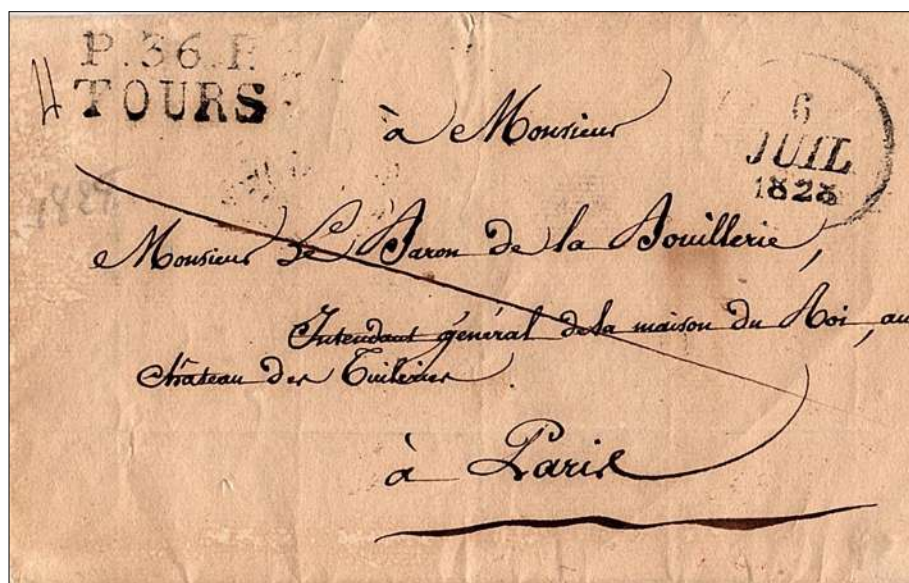 P.36.P.
TOURS
6
JUIL
1828
à Monsieur
Monsieur Le Baron de la Bouillerie,
Intendant général de la maison du Roi, au
château des Tuileries
à Paris